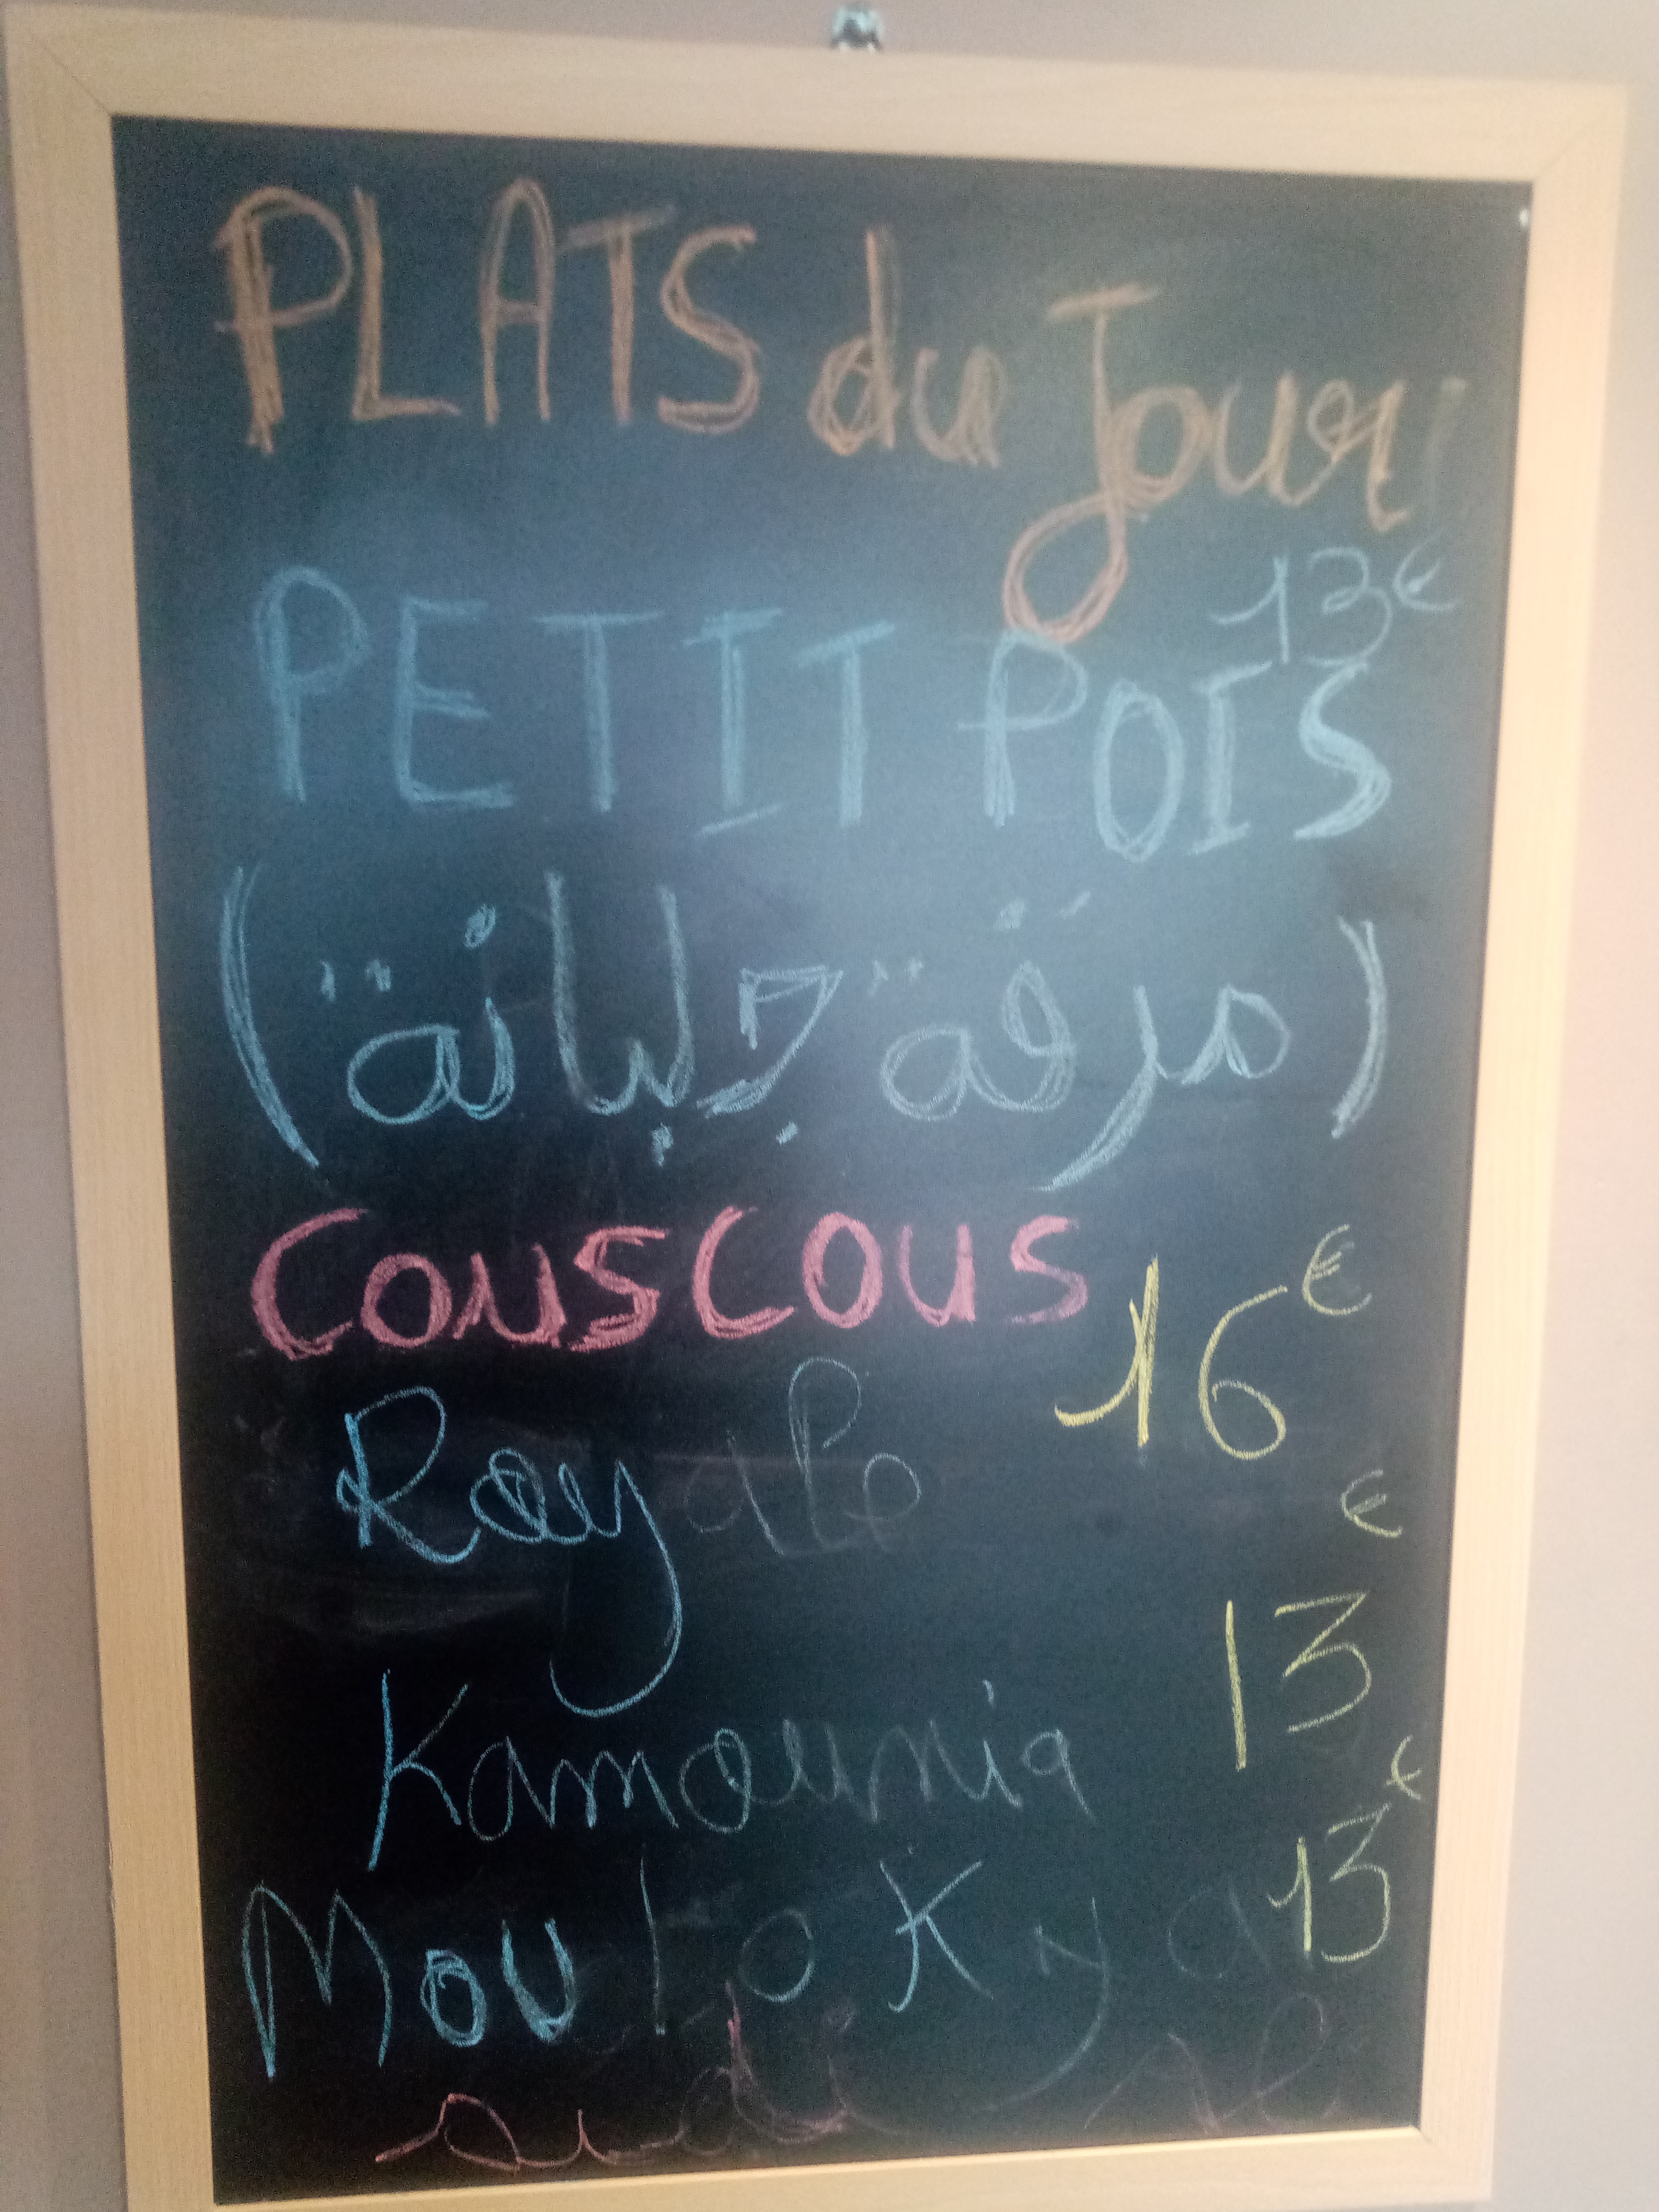 PLATS du Jour
13€
PETIT POIS
(مرقة جلبانة)
couscous 16€
Royale
Kamounia 13€
MouloKya 13€